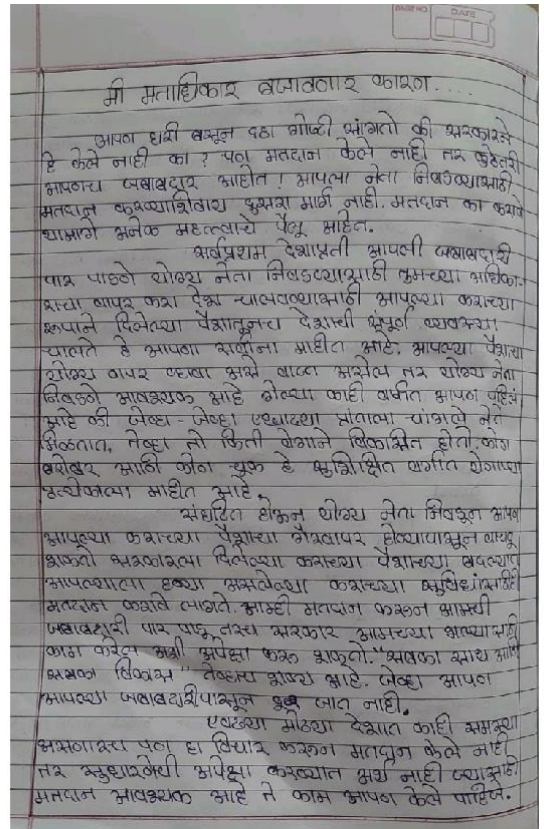 PAGE NO. DATE
मी मताधिकार बजावणार कारण....
आपण घरी बसून दहा गोष्टी सांगतो की सरकारने
हे केले नाही का? पण मतदान केले नाही तर कुठेतरी
आपणच जबाबदार आहोत! आपला नेता निवडण्यासाठी
मतदान करण्याशिवाय दुसरा मार्ग नाही. मतदान का करावे
यामागे अनेक महत्त्वाचे पैलू आहेत.
सर्वप्रथम देशाप्रती आपली जबाबदारी
पार पाडणे योग्य नेता निवडण्यासाठी तुमच्या अधिका-
राचा वापर करा देश चालवण्यासाठी आपल्या कराच्या
रूपाने दिलेल्या पैशातूनच देशाची संपूर्ण व्यवस्था
चालते हे आपणा सर्वांना माहीत आहे. आपल्या पैशाचा
योग्य वापर व्हावा असे वाटत असेल तर योग्य नेता
निवडणे आवश्यक आहे गेल्या काही वर्षात आपण पहिले
आहे की जेव्हा-जेव्हा एखाद्या प्रांताला चांगले नेते
मिळतात, तेव्हा तो किती वेगाने विकसित होतो. कोण
बरोबर आणि कोण चूक हे सुशिक्षित वर्गात येणाऱ्या
प्रत्येकाला माहीत आहे.
संघटित होऊन योग्य नेता निवडून आपण
आपल्या कराच्या पैशाचा गैरवापर होण्यापासून वाचवू
शकतो सरकारला दिलेल्या कराच्या पैशाच्या बदल्यात
आपल्याला हव्या असलेल्या कराच्या सुविधांसाठी
मतदान करावे लागते. आम्ही मतदान करून आमची
जबाबदारी पार पाडू तरच सरकार आमच्या भल्यासाठी
काम करेल अशी अपेक्षा करू शकतो. "सबका साथ आणि
सबका विकास" तेव्हाच शक्य आहे. जेव्हा आपण
आपल्या जबाबदारीपासून दूर जात नाही.
एवढ्या मोठ्या देशात काही समस्या
असणारच पण हा विचार करून मतदान केले नाही
तर सुधारणेची अपेक्षा करण्यात अर्थ नाही ज्यासाठी
मतदान आवश्यक आहे ते काम आपण केले पाहिजे.